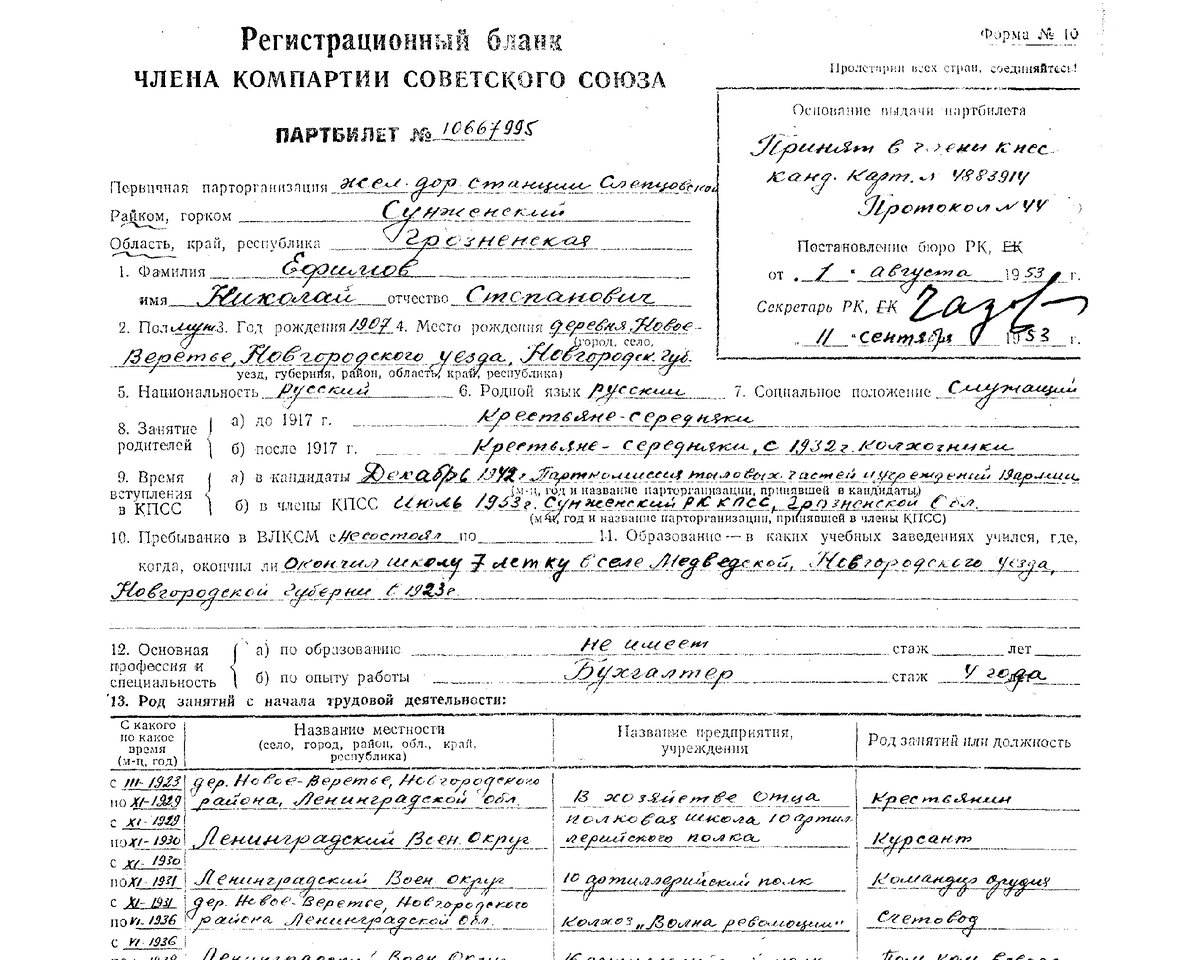 Регистрационный бланк
Форма № 10
ЧЛЕНА КОМПАРТИИ СОВЕТСКОГО СОЮЗА
Пролетарии всех стран, соединяйтесь!
ПАРТБИЛЕТ № 10667995
Основание выдачи партбилета
Принят в члени кпсс
канд. карт. № 4883914
Протокол № 44
Постановление бюро РК, ГК
от „ 1 " августа 1953 г.
Секретарь РК, ГК
„ 11 " сентября 1953 г.
Первичная парторганизация жел. дор. станции Слепцовской
Райком, горком Сунженский
Область, край, республика Грозненская
1. Фамилия Ефимов
имя Николай отчество Степанович
2. Пол муж 3. Год рождения 1907 4. Место рождения деревня Новое-
(город, село,
Веретье, Новгородского уезда, Новгородск. губ.
уезд, губерния, район, область, край, республика)
5. Национальность русский 6. Родной язык русский 7. Социальное положение Служащий
8. Занятие родителей
а) до 1917 г. Крестьяне-середняки
б) после 1917 г. Крестьяне-середняки, с 1932 г колхозники
9. Время вступления в КПСС
а) в кандидаты Декабрь 1942 г Парткомиссия тыловых частей и учреждений армии
(м-ц, год и название парторганизации, принявшей в кандидаты)
б) в члены КПСС Июль 1953 г. Сунженский РК КПСС, Грозненской обл.
(м-ц, год и название парторганизации, принявшей в члены КПСС)
10. Пребывание в ВЛКСМ с не состоял по 11. Образование — в каких учебных заведениях учился, где,
когда, окончил ли Окончил школу 7 летку в селе Медведской, Новгородского уезда,
Новгородской губерни в 1923 г.
12. Основная профессия и специальность
а) по образованию не имеет стаж лет
б) по опыту работы Бухгалтер стаж 4 года
13. Род занятий с начала трудовой деятельности:
С какого по какое время (м-ц, год)
Название местности
(село, город, район, обл., край, республика)
Название предприятия, учреждения
Род занятий или должность
с III-1923 дер. Новое-Веретье, Новгородского
по XI-1929 района, Ленинградской обл. В хозяйстве отца Крестьянин
с XI-1929 полковая школа 10 артил
по XI-1930 Ленинградский Воен. Округ лерийского полка Курсант
с XI-1930
по XI-1931 Ленинградский Воен. округ 10 артиллерийский полк Командир орудия
с XI-1931 дер. Новое-Веретье, Новгородского
по VI-1936 района Ленинградской обл. Колхоз „Волна революции" Счетовод
с VI-1936